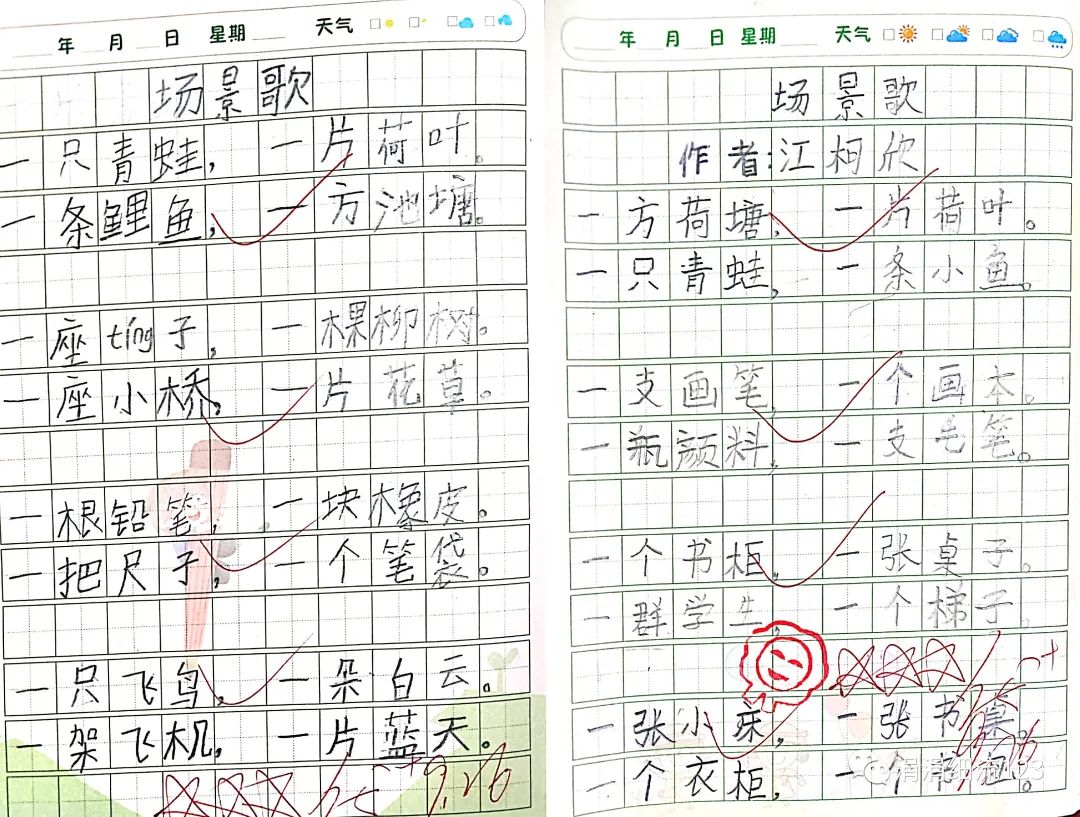 年 月 日 星期 天气
场景歌
一只青蛙，一片荷叶。
一条鲤鱼，一方池塘。
一座tíng子，一棵柳树。
一座小桥，一片花草。
一根铅笔，一块橡皮。
一把尺子，一个笔袋。
一只飞鸟，一朵白云。
一架飞机，一片蓝天。
9.26
年 月 日 星期 天气
场景歌
作者：江柯欣
一方荷塘，一片荷叶。
一只青蛙，一条小鱼。
一支画笔，一个画本。
一瓶颜料，一支毛笔。
一个书柜，一张桌子。
一群学生，一个梯子。
一张小床，一张书桌。
一个衣柜，一个